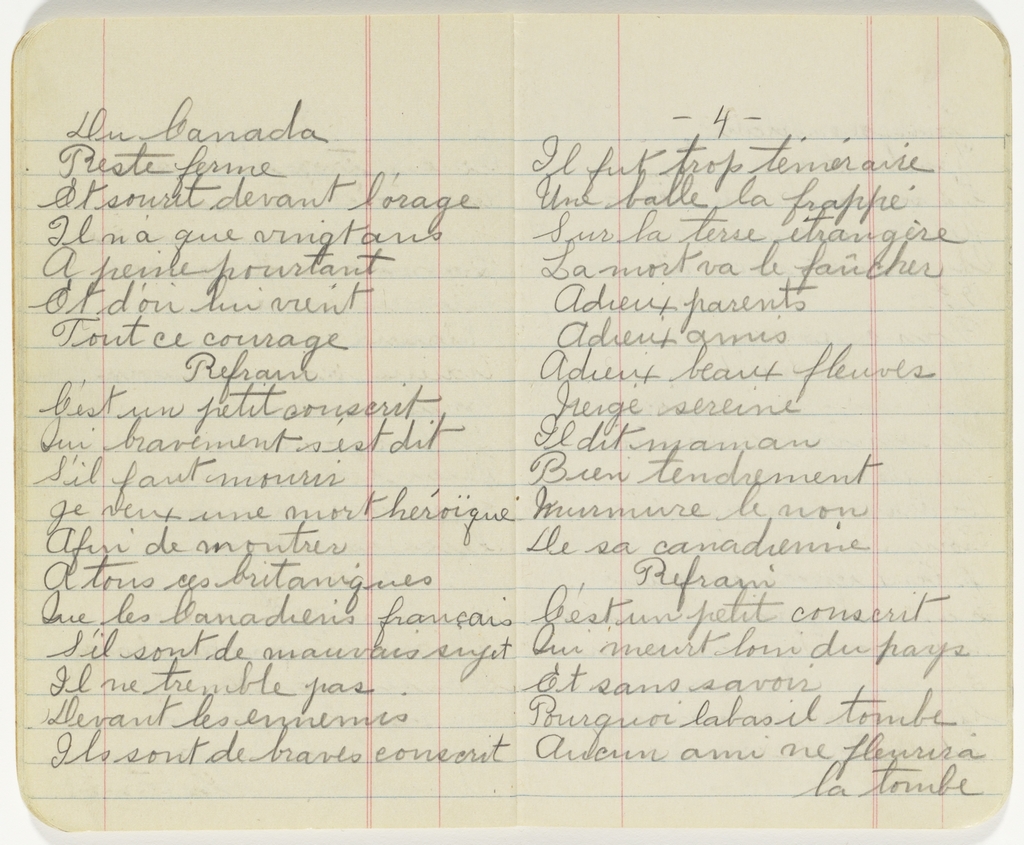 Du Canada
Reste ferme
Et sourit devant l'orage
Il n'a que vingt ans
A peine pourtant
Et d'où lui vient
Tout ce courage
Refrain
C'est un petit conscrit
Qui bravement s'est dit
S'il faut mourir
Je veux une mort héroïque
Afin de montrer
A tous ces britaniques
Que les Canadiens français
S'il sont de mauvais sujet
Il ne tremble pas.
Devant les ennemis
Ils sont de braves conscrit
- 4 -
Il fut trop téméraire
Une balle la frappé
Sur la terse étrangère
La mort va le faûcher
Adieux parents
Adieux amis
Adieux beaux fleuves
Neige sereine
Il dit maman
Bien tendrement
Murmure le non
De sa canadienne
Refrain
C'est un petit conscrit
Qui meurt loin du pays
Et sans savoir
Pourquoi labas il tombe
Aucun ami ne fleurira
la tombe